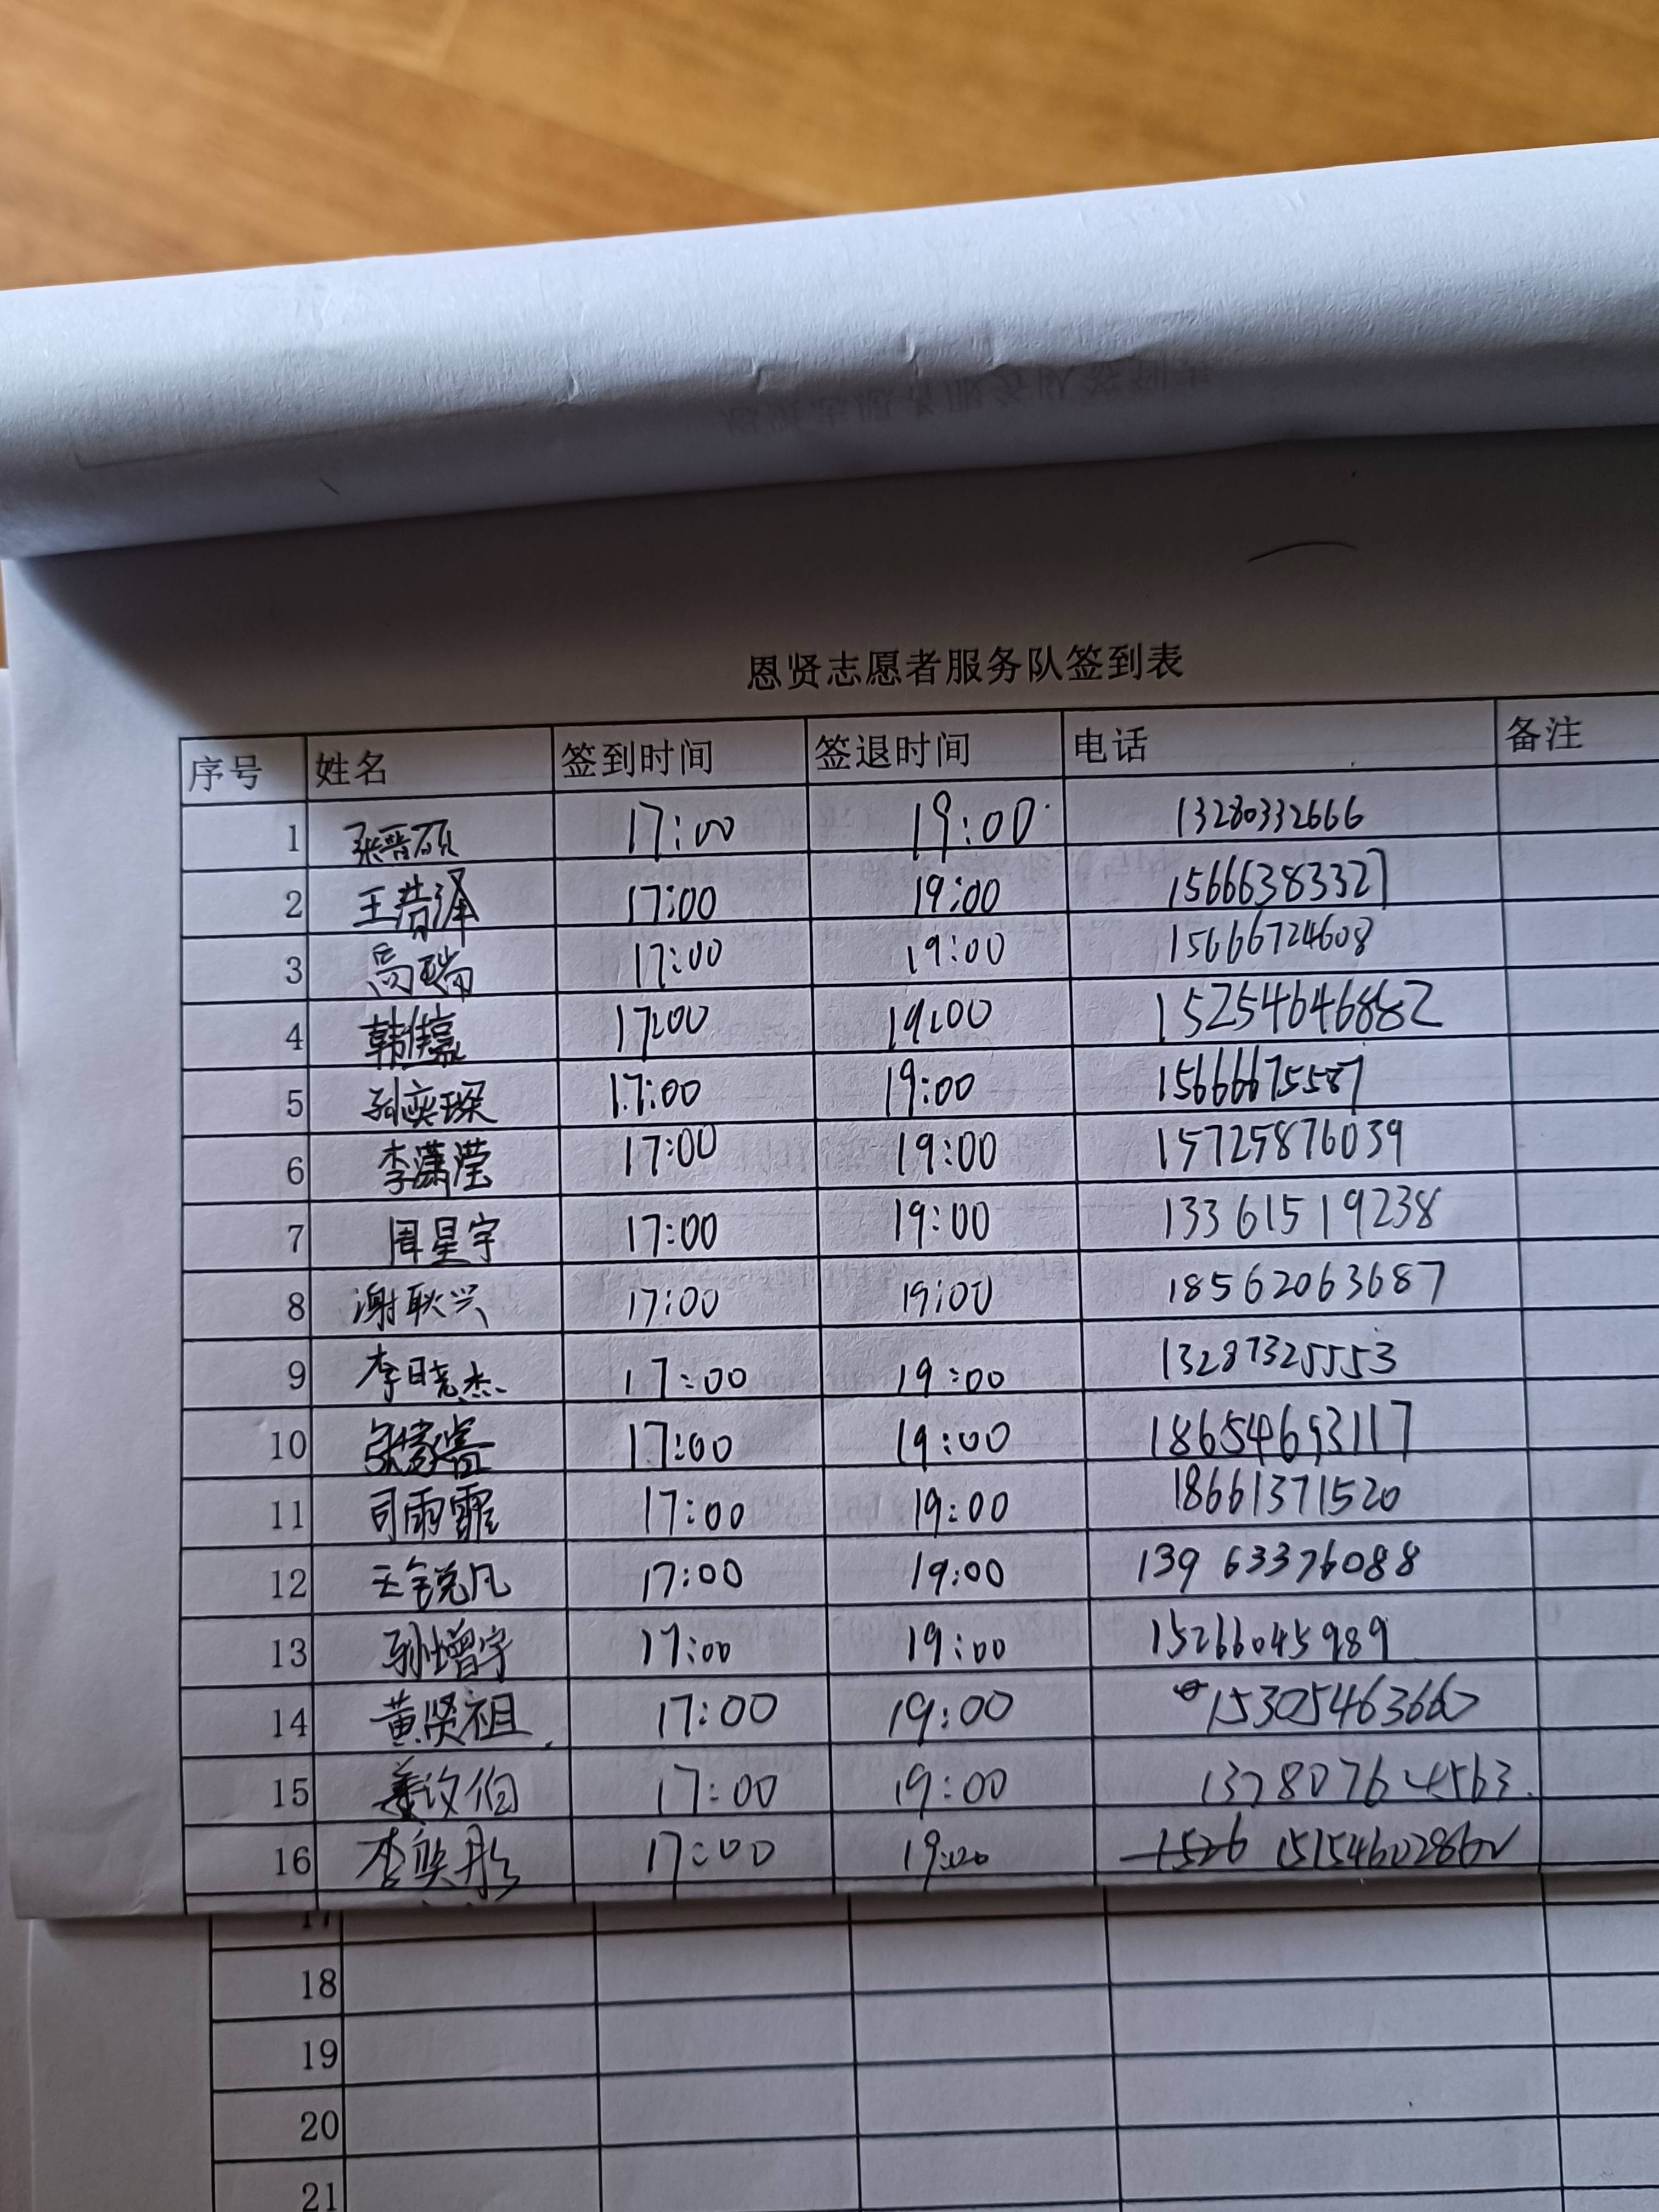 恩贤志愿者服务队签到表
序号 姓名 签到时间 签退时间 电话 备注
1 张晋硕 17:00 19:00 13280332666
2 王浩泽 17:00 19:00 15666383327
3 高瑞 17:00 19:00 15666724608
4 韩 17:00 19:00 15254646882
5 孙奕琛 17:00 19:00 15666675587
6 李潇滢 17:00 19:00 15725876039
7 周星宇 17:00 19:00 133 61519238
8 谢耿兴 17:00 19:00 18562063687
9 李晓杰 17:00 19:00 13287325553
10 张睿 17:00 19:00 18654693117
11 司雨霏 17:00 19:00 18661371520
12 王锐凡 17:00 19:00 139 63376088
13 孙增宇 17:00 19:00 15266045989
14 黄贤祖 17:00 19:00 15305463660
15 姜汶伯 17:00 19:00 13780764563
16 李奕彤 17:00 19:00
17
18
19
20
21